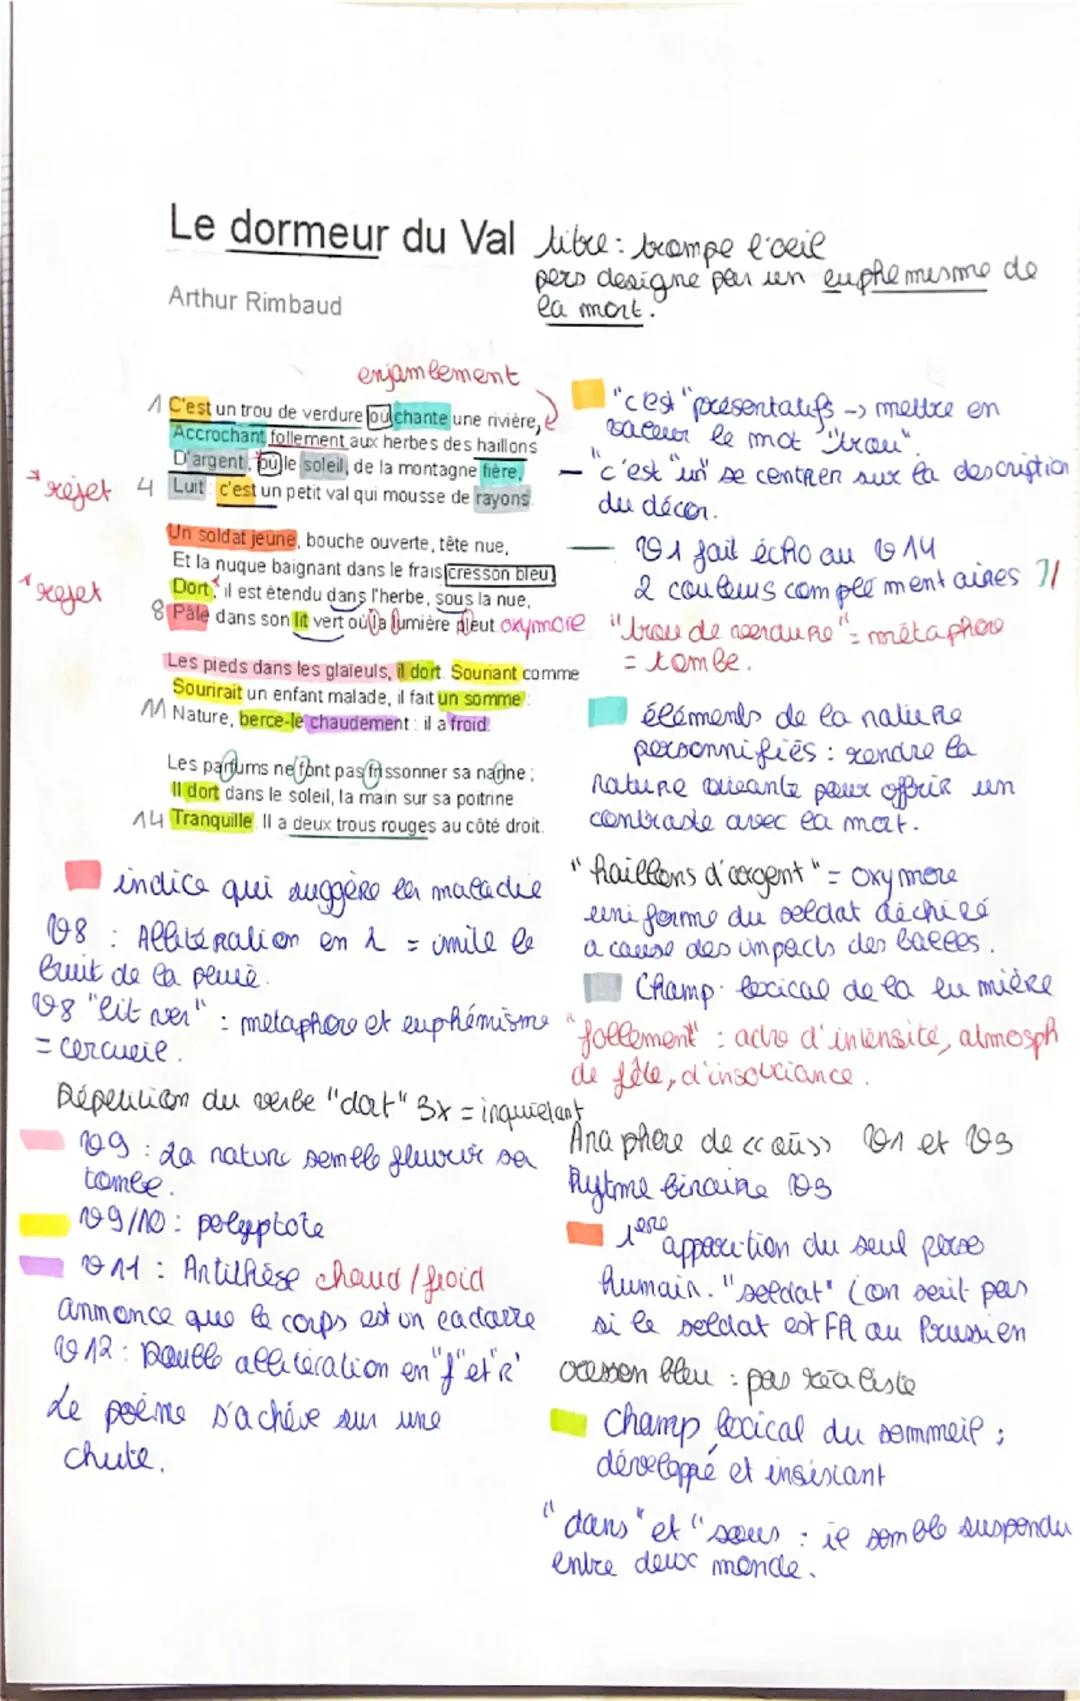 Le dormeur du Val
titre : trompe l'oeil
pers designe par un euphemisme de
la mort.
Arthur Rimbaud
enjambement
1 C'est un trou de verdure où chante une rivière,
Accrochant follement aux herbes des haillons
D'argent, où le soleil, de la montagne fière,
* rejet
4 Luit : c'est un petit val qui mousse de rayons.
Un soldat jeune, bouche ouverte, tête nue,
Et la nuque baignant dans le frais cresson bleu,
* rejet
Dort ; il est étendu dans l'herbe, sous la nue,
8 Pâle dans son lit vert où la lumière pleut. oxymore
Les pieds dans les glaïeuls, il dort. Souriant comme
Sourirait un enfant malade, il fait un somme :
11 Nature, berce-le chaudement : il a froid.
Les parfums ne font pas frissonner sa narine ;
Il dort dans le soleil, la main sur sa poitrine
14 Tranquille. Il a deux trous rouges au côté droit.
"c'est" présentatifs -> mettre en
valeur le mot "trou".
- "c'est "un" se centrer sur la description
du décor.
V1 fait écho au V14
2 couleurs complementaires
"trou de verdure" = métaphore
= tombe.
éléments de la nature
personnifiés : rendre la
nature vivante pour offrir un
contraste avec la mort.
"haillons d'argent" = oxymore
uniforme du soldat déchiré
a cause des impacts des balles.
Champ lexical de la lumière
"follement" : adv d'intensité, atmosph
de fête, d'insouciance.
Anaphore de << où >> V1 et V3
Rytme binaire V3
1ere apparition du seul perso
humain. "soldat" (on sait pas
si le soldat est FR ou Prussien
cresson bleu : pas réaliste
Champ lexical du sommeil ;
développé et insistant
"dans" et "sous : il semble suspendu
entre deux monde.
indice qui suggère la maladie
V8 : Allitération en l = imite le
bruit de la pluie.
V8 "lit ver" : métaphore et euphémisme
= cercueil.
Répétition du verbe "dort" 3x = inquiétant
V9 : La nature semble fleurir sa
tombe.
V9/10 : polyptote
V11 : Antithèse chaud / froid
annonce que le corps est un cadavre
V12 : Double allitération en "f" et "r"
Le poème s'achève sur une
chute.